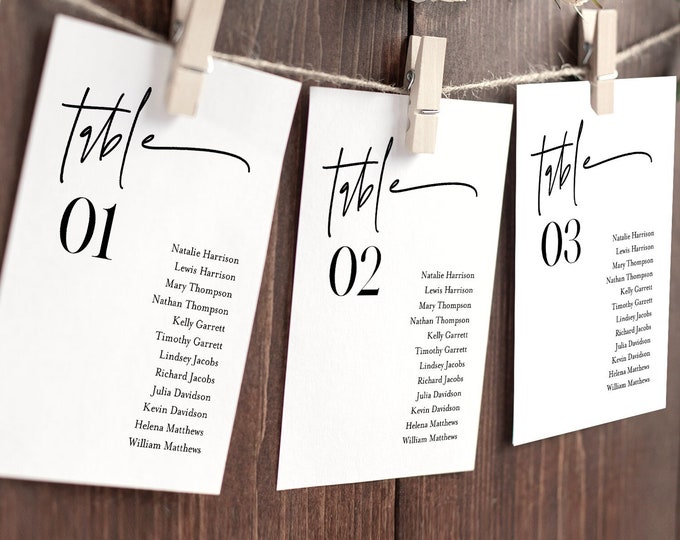 table
01
Natalie Harrison
Lewis Harrison
Mary Thompson
Nathan Thompson
Kelly Garrett
Timothy Garrett
Lindsey Jacobs
Richard Jacobs
Julia Davidson
Kevin Davidson
Helena Matthews
William Matthews
table
02
Natalie Harrison
Lewis Harrison
Mary Thompson
Nathan Thompson
Kelly Garrett
Timothy Garrett
Lindsey Jacobs
Richard Jacobs
Julia Davidson
Kevin Davidson
Helena Matthews
William Matthews
table
03
Natalie Harrison
Lewis Harrison
Mary Thompson
Nathan Thompson
Kelly Garrett
Timothy Garrett
Lindsey Jacobs
Richard Jacobs
Julia Davidson
Kevin Davidson
Helena Matthews
William Matthews